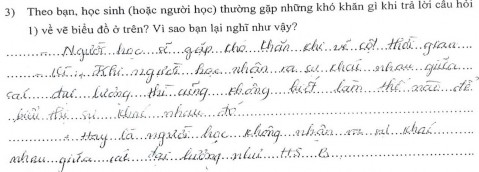 3) Theo bạn, học sinh (hoặc người học) thường gặp những khó khăn gì khi trả lời câu hỏi
1) về vẽ biểu đồ ở trên? Vì sao bạn lại nghĩ như vậy?
Người học sẽ gặp khó khăn khi vẽ cột thời gian
Vì: Khi người học nhận ra sự khác nhau giữa
các đại lượng thì cũng không biết làm thế nào để
biểu thị sự khác nhau đó
Hay là người học không nhận ra sự khác
nhau giữa các đại lượng như HS B